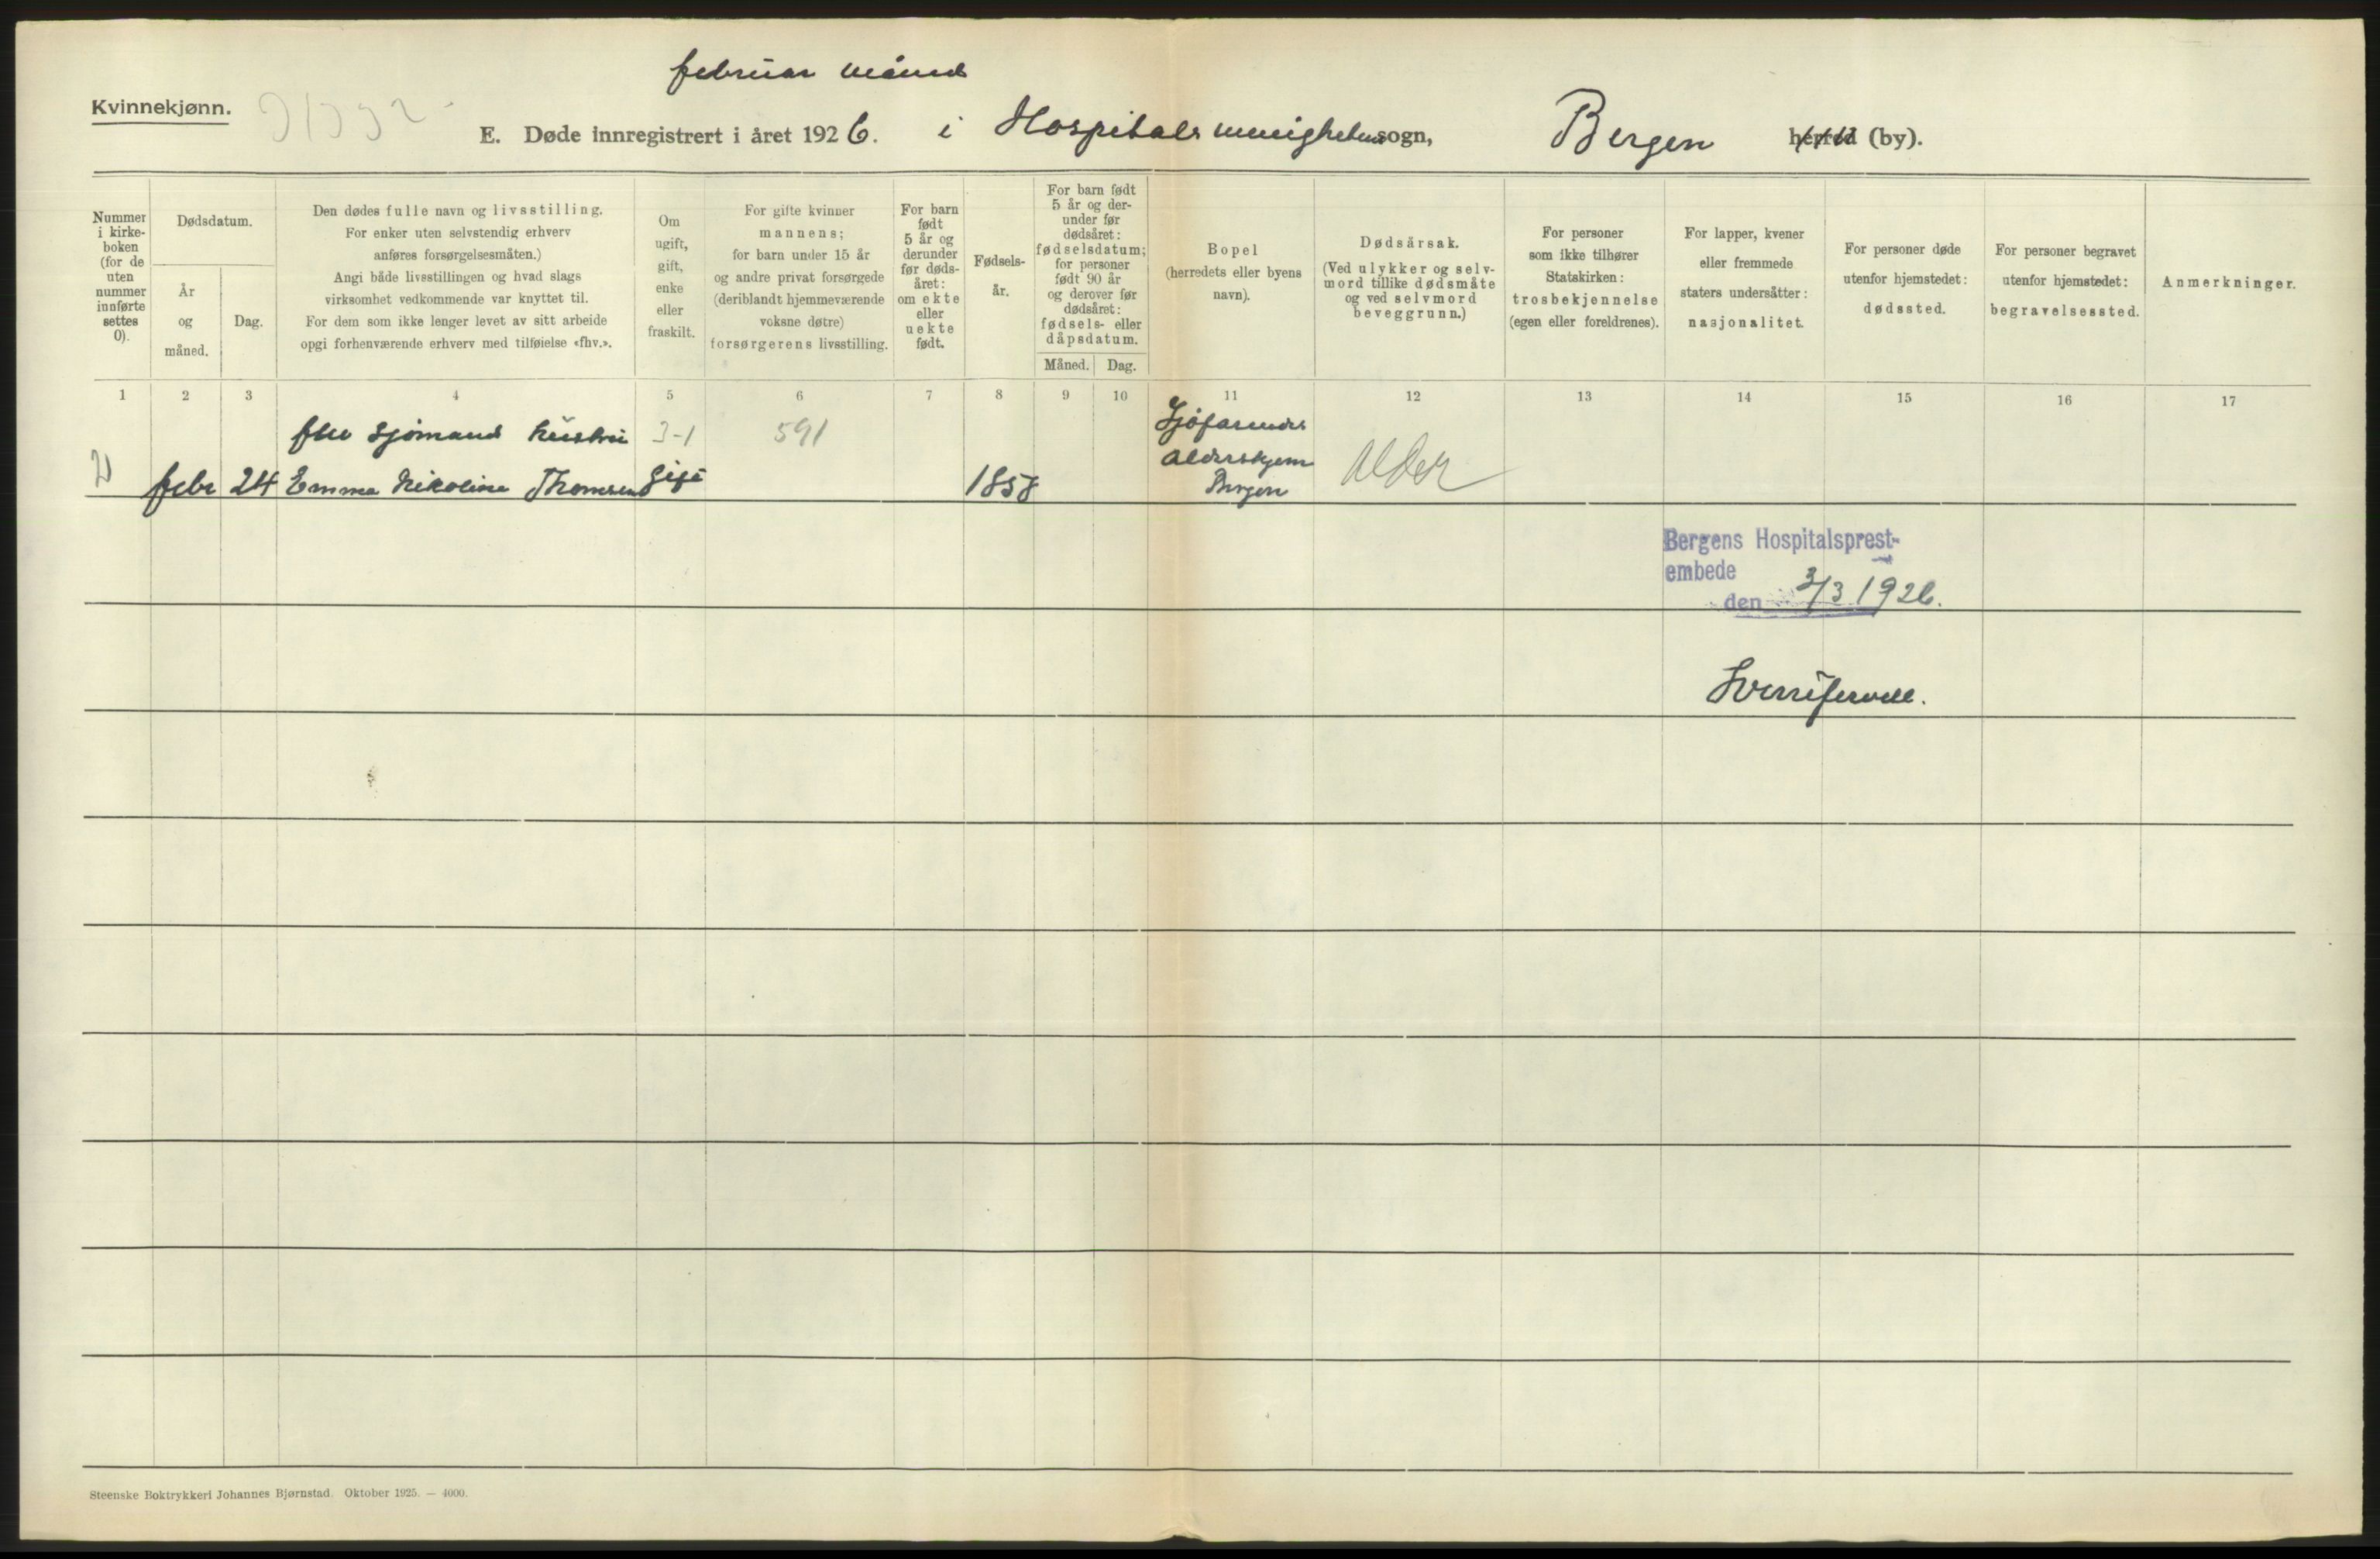 februar måned
Kvinnekjønn.
E. Døde innregistrert i året 1926. i Hospitalsmenighetens sogn, Bergen herred (by).
Nummer
i kirke-
boken
(for de
uten
nummer
innførte
settes
0).
Dødsdatum.
År
og
måned.
Dag.
Den dødes fulle navn og livsstilling.
For enker uten selvstendig erhverv
anføres forsørgelsesmåten.)
Angi både livsstillingen og hvad slags
virksomhet vedkommende var knyttet til.
For dem som ikke lenger levet av sitt arbeide
opgi forhenværende erhverv med tilføielse «fhv.».
Om
ugift,
gift,
enke
eller
fraskilt.
For gifte kvinner
mannens;
for barn under 15 år
og andre privat forsørgede
(deriblandt hjemmeværende
voksne døtre)
forsørgerens livsstilling.
For barn
født
5 år og
derunder
før døds-
året:
om ekte
eller
uekte
født.
Fødsels-
år.
For barn født
5 år og der-
under før
dødsåret:
fødselsdatum;
for personer
født 90 år
og derover før
dødsåret:
fødsels- eller
dåpsdatum.
Måned. Dag.
Bopel
(herredets eller byens
navn).
Dødsårsak.
(Ved ulykker og selv-
mord tillike dødsmåte
og ved selvmord
beveggrunn.)
For personer
som ikke tilhører
Statskirken:
trosbekjennelse
(egen eller foreldrenes).
For lapper, kvener
eller fremmede
staters undersåtter:
nasjonalitet.
For personer døde
utenfor hjemstedet:
dødssted.
For personer begravet
utenfor hjemstedet:
begravelsessted.
Anmerkninger.
1 2 3 4 5 6 7 8 9 10 11 12 13 14 15 16 17
sjømands hustru 3-1 591
febr 24 Emma Nikoline Thomsen Gift 1858
Sjøfarendes
Aldershjem
Bergen
Alder
Bergens Hospitalsprest-
embede
den 3/3 1926.
Steenske Boktrykkeri Johannes Bjørnstad. Oktober 1925. — 4000.